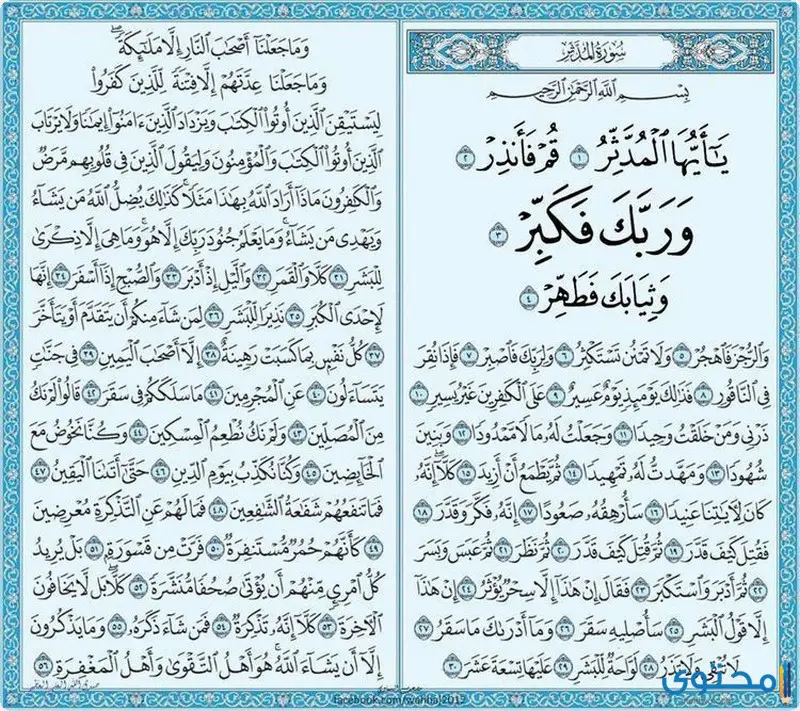 سُورَةُ المُدَّثِّر
بِسْمِ اللَّهِ الرَّحْمَٰنِ الرَّحِيمِ
يَٰٓأَيُّهَا الْمُدَّثِّرُ ١ قُمْ فَأَنذِرْ ٢
وَرَبَّكَ فَكَبِّرْ ٣
وَثِيَابَكَ فَطَهِّرْ ٤
وَالرُّجْزَ فَاهْجُرْ ٥ وَلَا تَمْنُن تَسْتَكْثِرُ ٦ وَلِرَبِّكَ فَاصْبِرْ ٧ فَإِذَا نُقِرَ
فِي النَّاقُورِ ٨ فَذَٰلِكَ يَوْمَئِذٍ يَوْمٌ عَسِيرٌ ٩ عَلَى الْكَٰفِرِينَ غَيْرُ يَسِيرٍ ١٠
ذَرْنِي وَمَنْ خَلَقْتُ وَحِيدًا ١١ وَجَعَلْتُ لَهُۥ مَالًا مَّمْدُودًا ١٢ وَبَنِينَ
شُهُودًا ١٣ وَمَهَّدتُّ لَهُۥ تَمْهِيدًا ١٤ ثُمَّ يَطْمَعُ أَنْ أَزِيدَ ١٥ كَلَّآ إِنَّهُۥ
كَانَ لِءَايَٰتِنَا عَنِيدًا ١٦ سَأُرْهِقُهُۥ صَعُودًا ١٧ إِنَّهُۥ فَكَّرَ وَقَدَّرَ ١٨
فَقُتِلَ كَيْفَ قَدَّرَ ١٩ ثُمَّ قُتِلَ كَيْفَ قَدَّرَ ٢٠ ثُمَّ نَظَرَ ٢١ ثُمَّ عَبَسَ وَبَسَرَ
٢٢ ثُمَّ أَدْبَرَ وَاسْتَكْبَرَ ٢٣ فَقَالَ إِنْ هَٰذَآ إِلَّا سِحْرٌ يُؤْثَرُ ٢٤ إِنْ هَٰذَآ
إِلَّا قَوْلُ الْبَشَرِ ٢٥ سَأُصْلِيهِ سَقَرَ ٢٦ وَمَآ أَدْرَىٰكَ مَا سَقَرُ ٢٧
لَا تُبْقِي وَلَا تَذَرُ ٢٨ لَوَّاحَةٌ لِّلْبَشَرِ ٢٩ عَلَيْهَا تِسْعَةَ عَشَرَ ٣٠
وَمَا جَعَلْنَآ أَصْحَٰبَ النَّارِ إِلَّا مَلَٰٓئِكَةً
وَمَا جَعَلْنَا عِدَّتَهُمْ إِلَّا فِتْنَةً لِّلَّذِينَ كَفَرُوا
لِيَسْتَيْقِنَ الَّذِينَ أُوتُوا الْكِتَٰبَ وَيَزْدَادَ الَّذِينَ ءَامَنُوٓا إِيمَٰنًا وَلَا يَرْتَابَ
الَّذِينَ أُوتُوا الْكِتَٰبَ وَالْمُؤْمِنُونَ وَلِيَقُولَ الَّذِينَ فِي قُلُوبِهِم مَّرَضٌ
وَالْكَٰفِرُونَ مَاذَآ أَرَادَ اللَّهُ بِهَٰذَا مَثَلًا كَذَٰلِكَ يُضِلُّ اللَّهُ مَن يَشَآءُ
وَيَهْدِي مَن يَشَآءُ وَمَا يَعْلَمُ جُنُودَ رَبِّكَ إِلَّا هُوَ وَمَا هِيَ إِلَّا ذِكْرَىٰ
لِلْبَشَرِ ٣١ كَلَّا وَالْقَمَرِ ٣٢ وَالَّيْلِ إِذْ أَدْبَرَ ٣٣ وَالصُّبْحِ إِذَآ أَسْفَرَ ٣٤ إِنَّهَا
لَإِحْدَى الْكُبَرِ ٣٥ نَذِيرًا لِّلْبَشَرِ ٣٦ لِمَن شَآءَ مِنكُمْ أَن يَتَقَدَّمَ أَوْ يَتَأَخَّرَ
٣٧ كُلُّ نَفْسٍ بِمَا كَسَبَتْ رَهِينَةٌ ٣٨ إِلَّآ أَصْحَٰبَ الْيَمِينِ ٣٩ فِي جَنَّٰتٍ
يَتَسَآءَلُونَ ٤٠ عَنِ الْمُجْرِمِينَ ٤١ مَا سَلَكَكُمْ فِي سَقَرَ ٤٢ قَالُوا لَمْ نَكُ
مِنَ الْمُصَلِّينَ ٤٣ وَلَمْ نَكُ نُطْعِمُ الْمِسْكِينَ ٤٤ وَكُنَّا نَخُوضُ مَعَ
الْخَآئِضِينَ ٤٥ وَكُنَّا نُكَذِّبُ بِيَوْمِ الدِّينِ ٤٦ حَتَّىٰٓ أَتَىٰنَا الْيَقِينُ ٤٧
فَمَا تَنفَعُهُمْ شَفَٰعَةُ الشَّٰفِعِينَ ٤٨ فَمَا لَهُمْ عَنِ التَّذْكِرَةِ مُعْرِضِينَ
٤٩ كَأَنَّهُمْ حُمُرٌ مُّسْتَنفِرَةٌ ٥٠ فَرَّتْ مِن قَسْوَرَةٍ ٥١ بَلْ يُرِيدُ
كُلُّ امْرِئٍ مِّنْهُمْ أَن يُؤْتَىٰ صُحُفًا مُّنَشَّرَةً ٥٢ كَلَّا بَل لَّا يَخَافُونَ
الْءَاخِرَةَ ٥٣ كَلَّآ إِنَّهُۥ تَذْكِرَةٌ ٥٤ فَمَن شَآءَ ذَكَرَهُۥ ٥٥ وَمَا يَذْكُرُونَ
إِلَّآ أَن يَشَآءَ اللَّهُ هُوَ أَهْلُ التَّقْوَىٰ وَأَهْلُ الْمَغْفِرَةِ ٥٦
محتوى